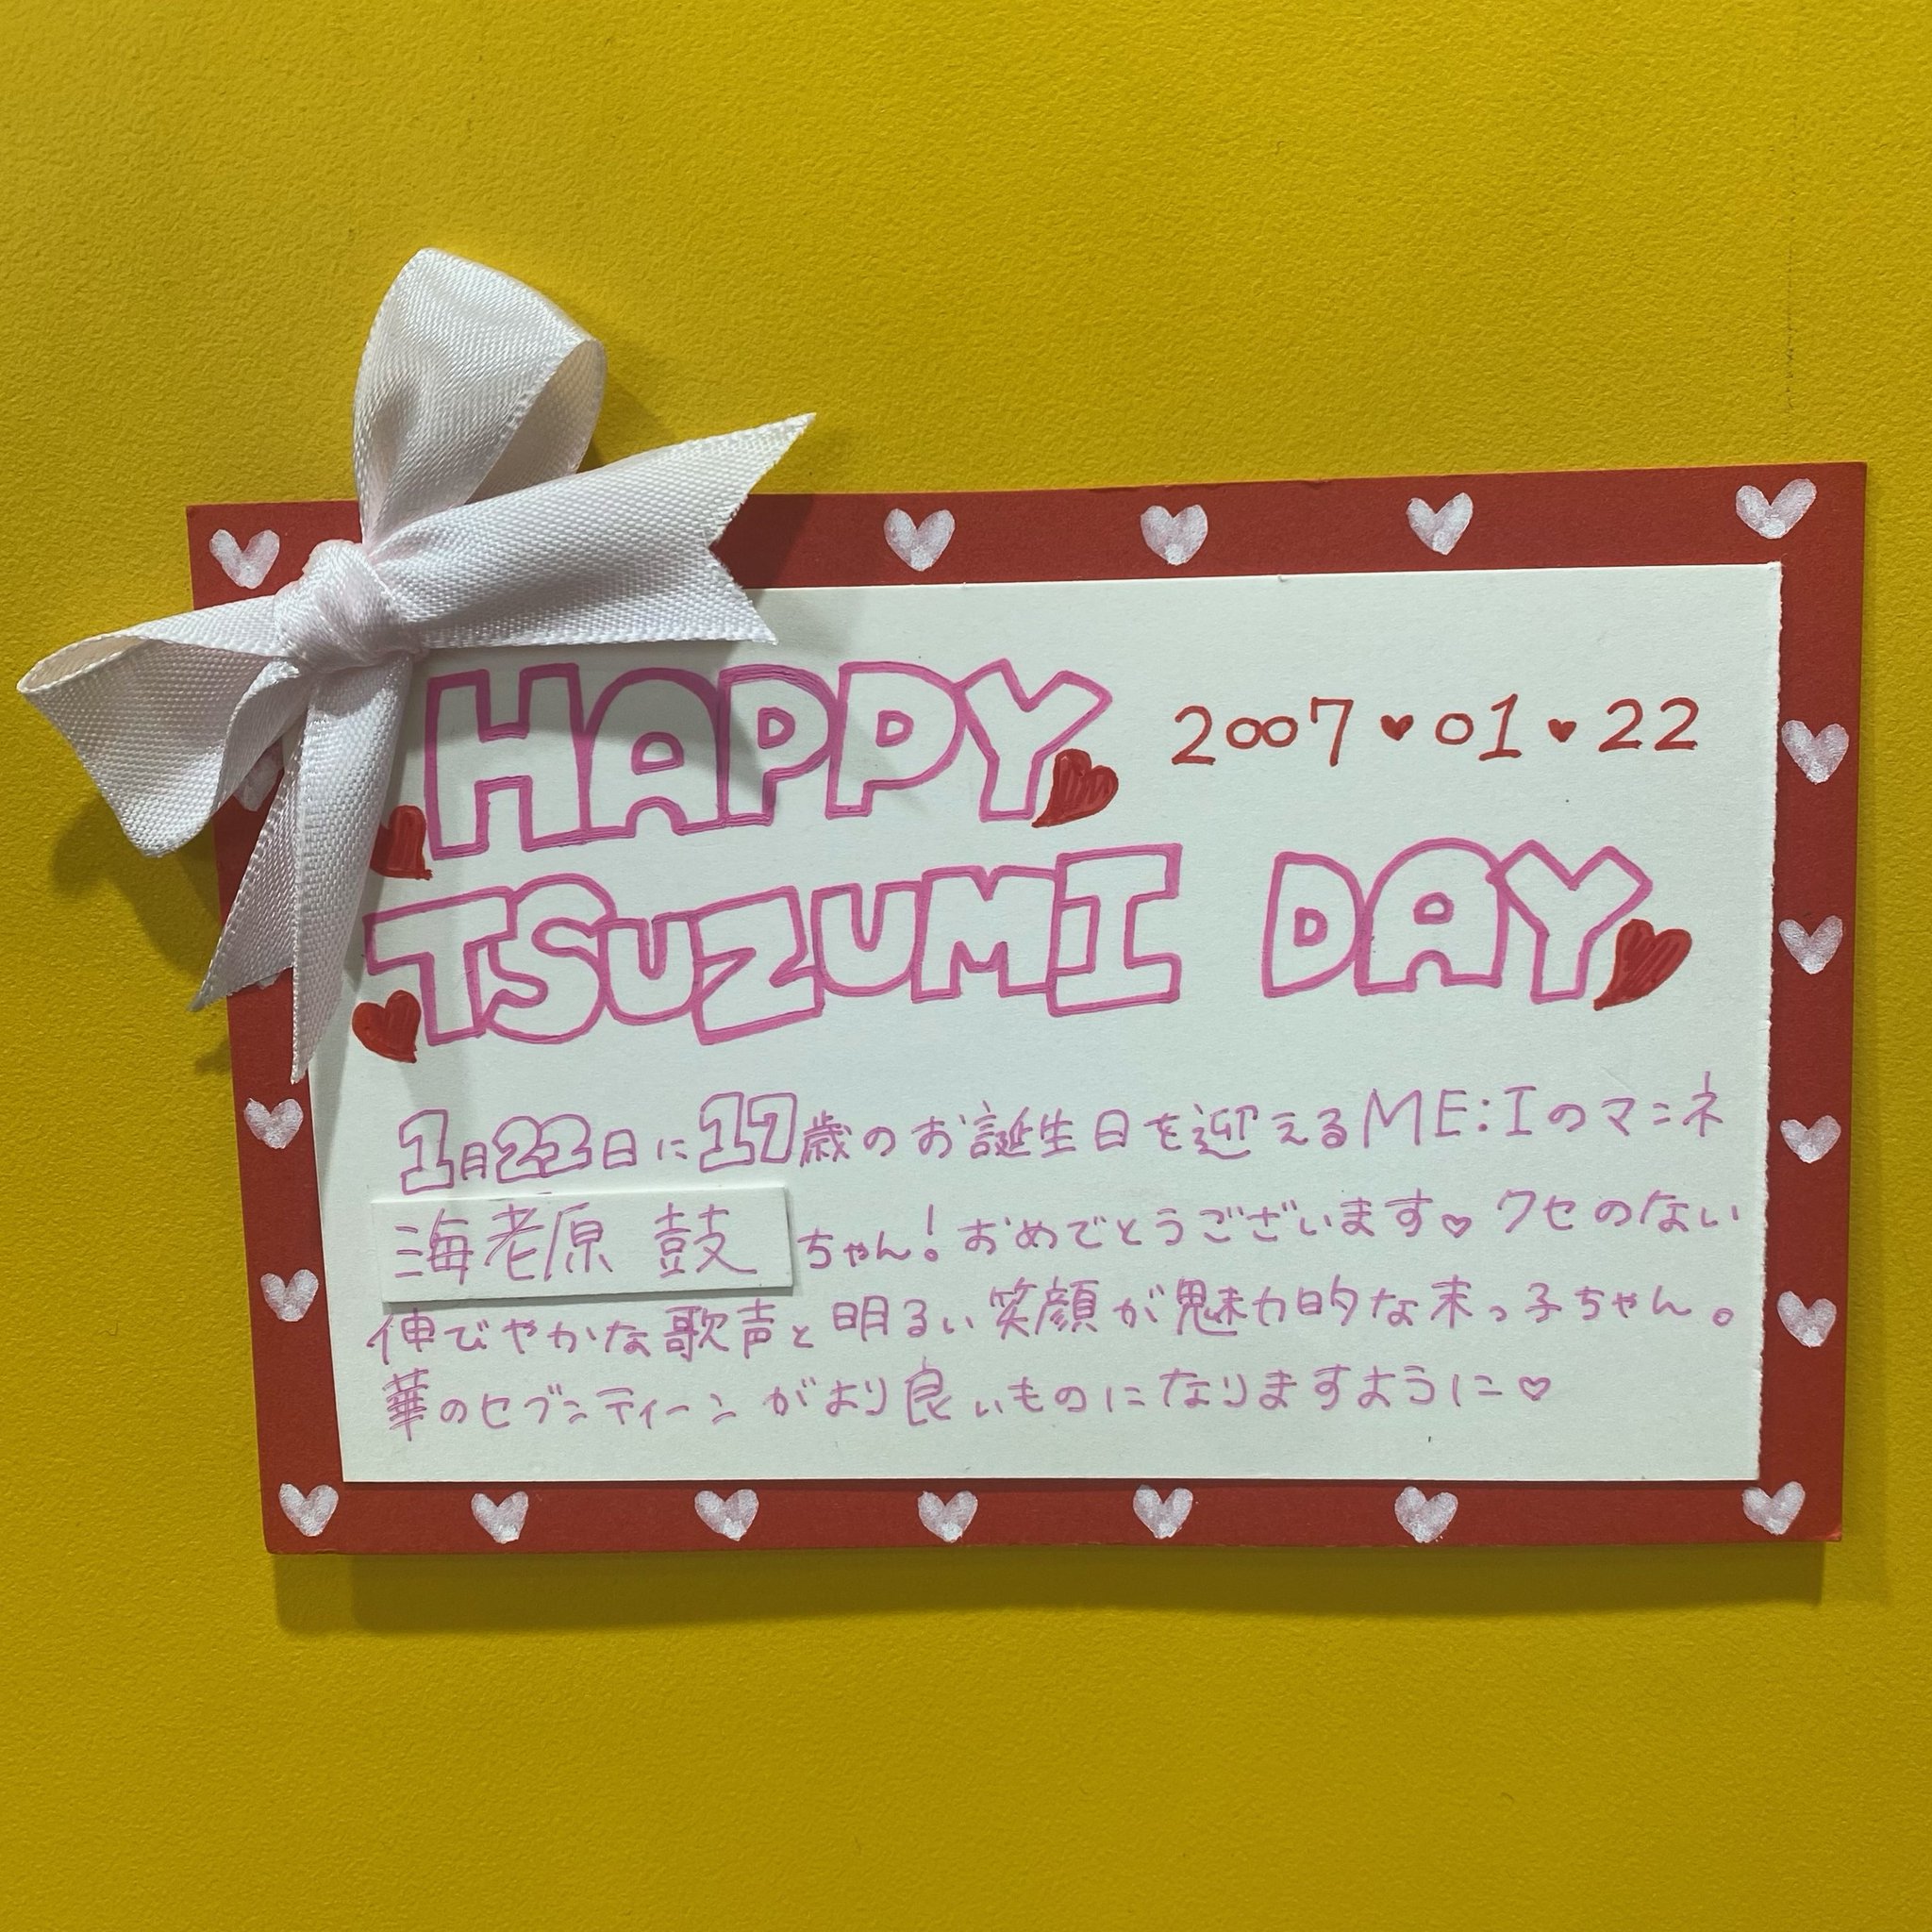 HAPPY
2007♥01♥22
TSUZUMI DAY
1月22日に17歳のお誕生日を迎えるME:Iのマンネ
海老原 鼓 ちゃん!おめでとうございます♡クセのない
伸びやかな歌声と明るい笑顔が魅力的な末っ子ちゃん。
華のセブンティーンがより良いものになりますように♡